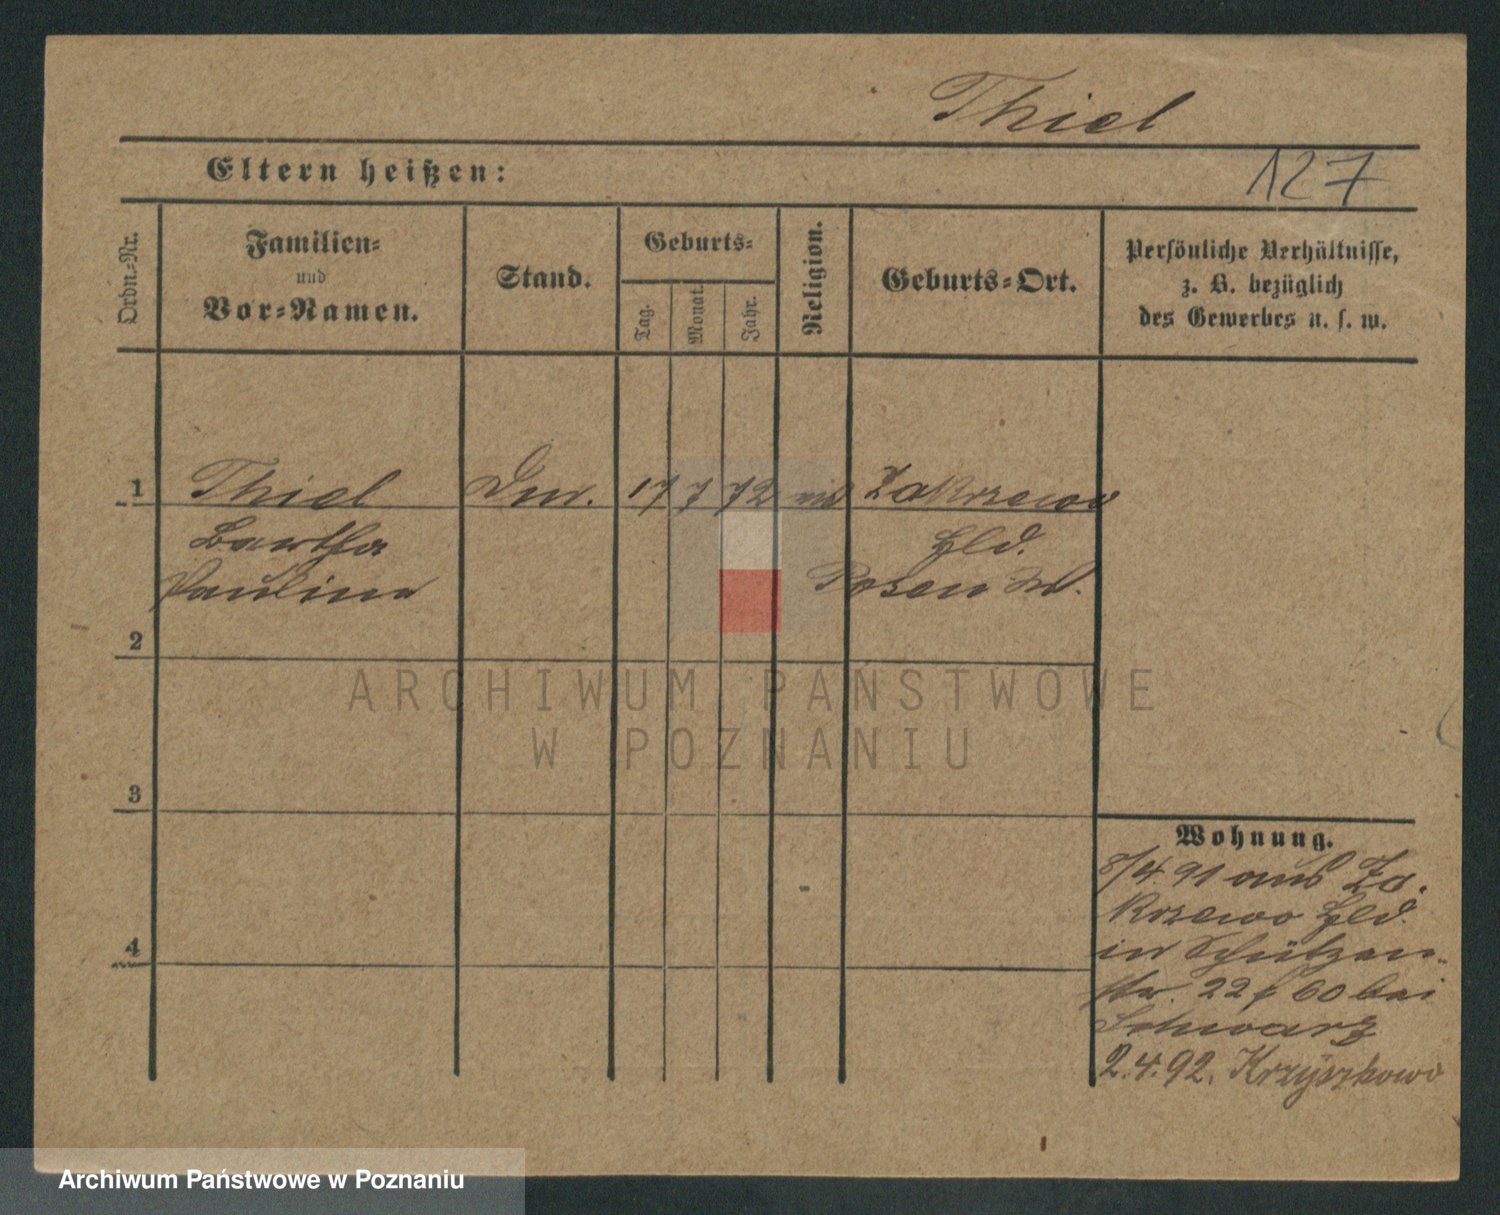 Thiel
Eltern heißen:
127
Ordn.-Nr.
Familien-
und
Vor-Namen.
Stand.
Geburts-
Tag.
Monat.
Jahr.
Religion.
Geburts-Ort.
Persönliche Verhältnisse,
z. B. bezüglich
des Gewerbes u. s. w.
1 Thiel 17 7 72 Zakrzewo
Bertha Hld.
Paulina Posen W.
2
ARCHIWUM PAŃSTWOWE
W POZNANIU
3
Wohnung.
8/4 91 aus Za-
krzewo Hld.
in Schützen-
4
str. 22 f 60 bei
Schwarz
2.4.92. Krzyszkowo
Archiwum Państwowe w Poznaniu